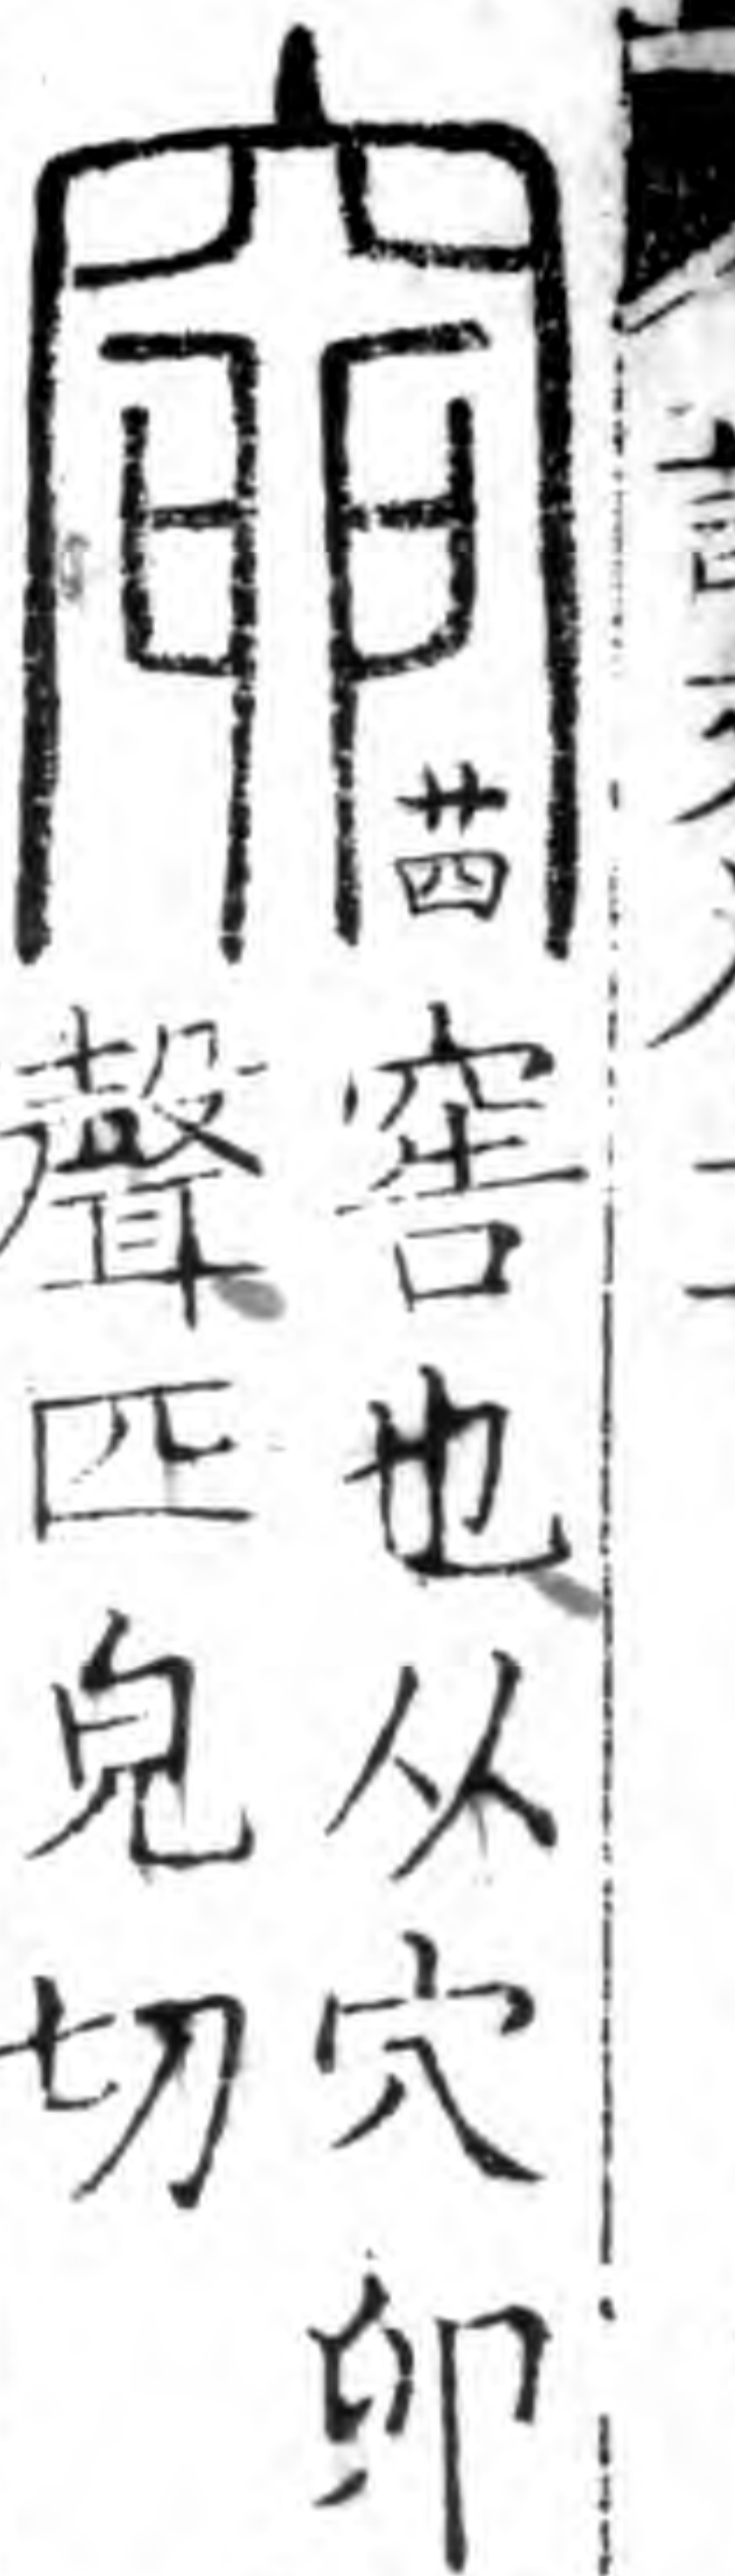 窌
廿四
窖也从穴卯
聲匹皃切